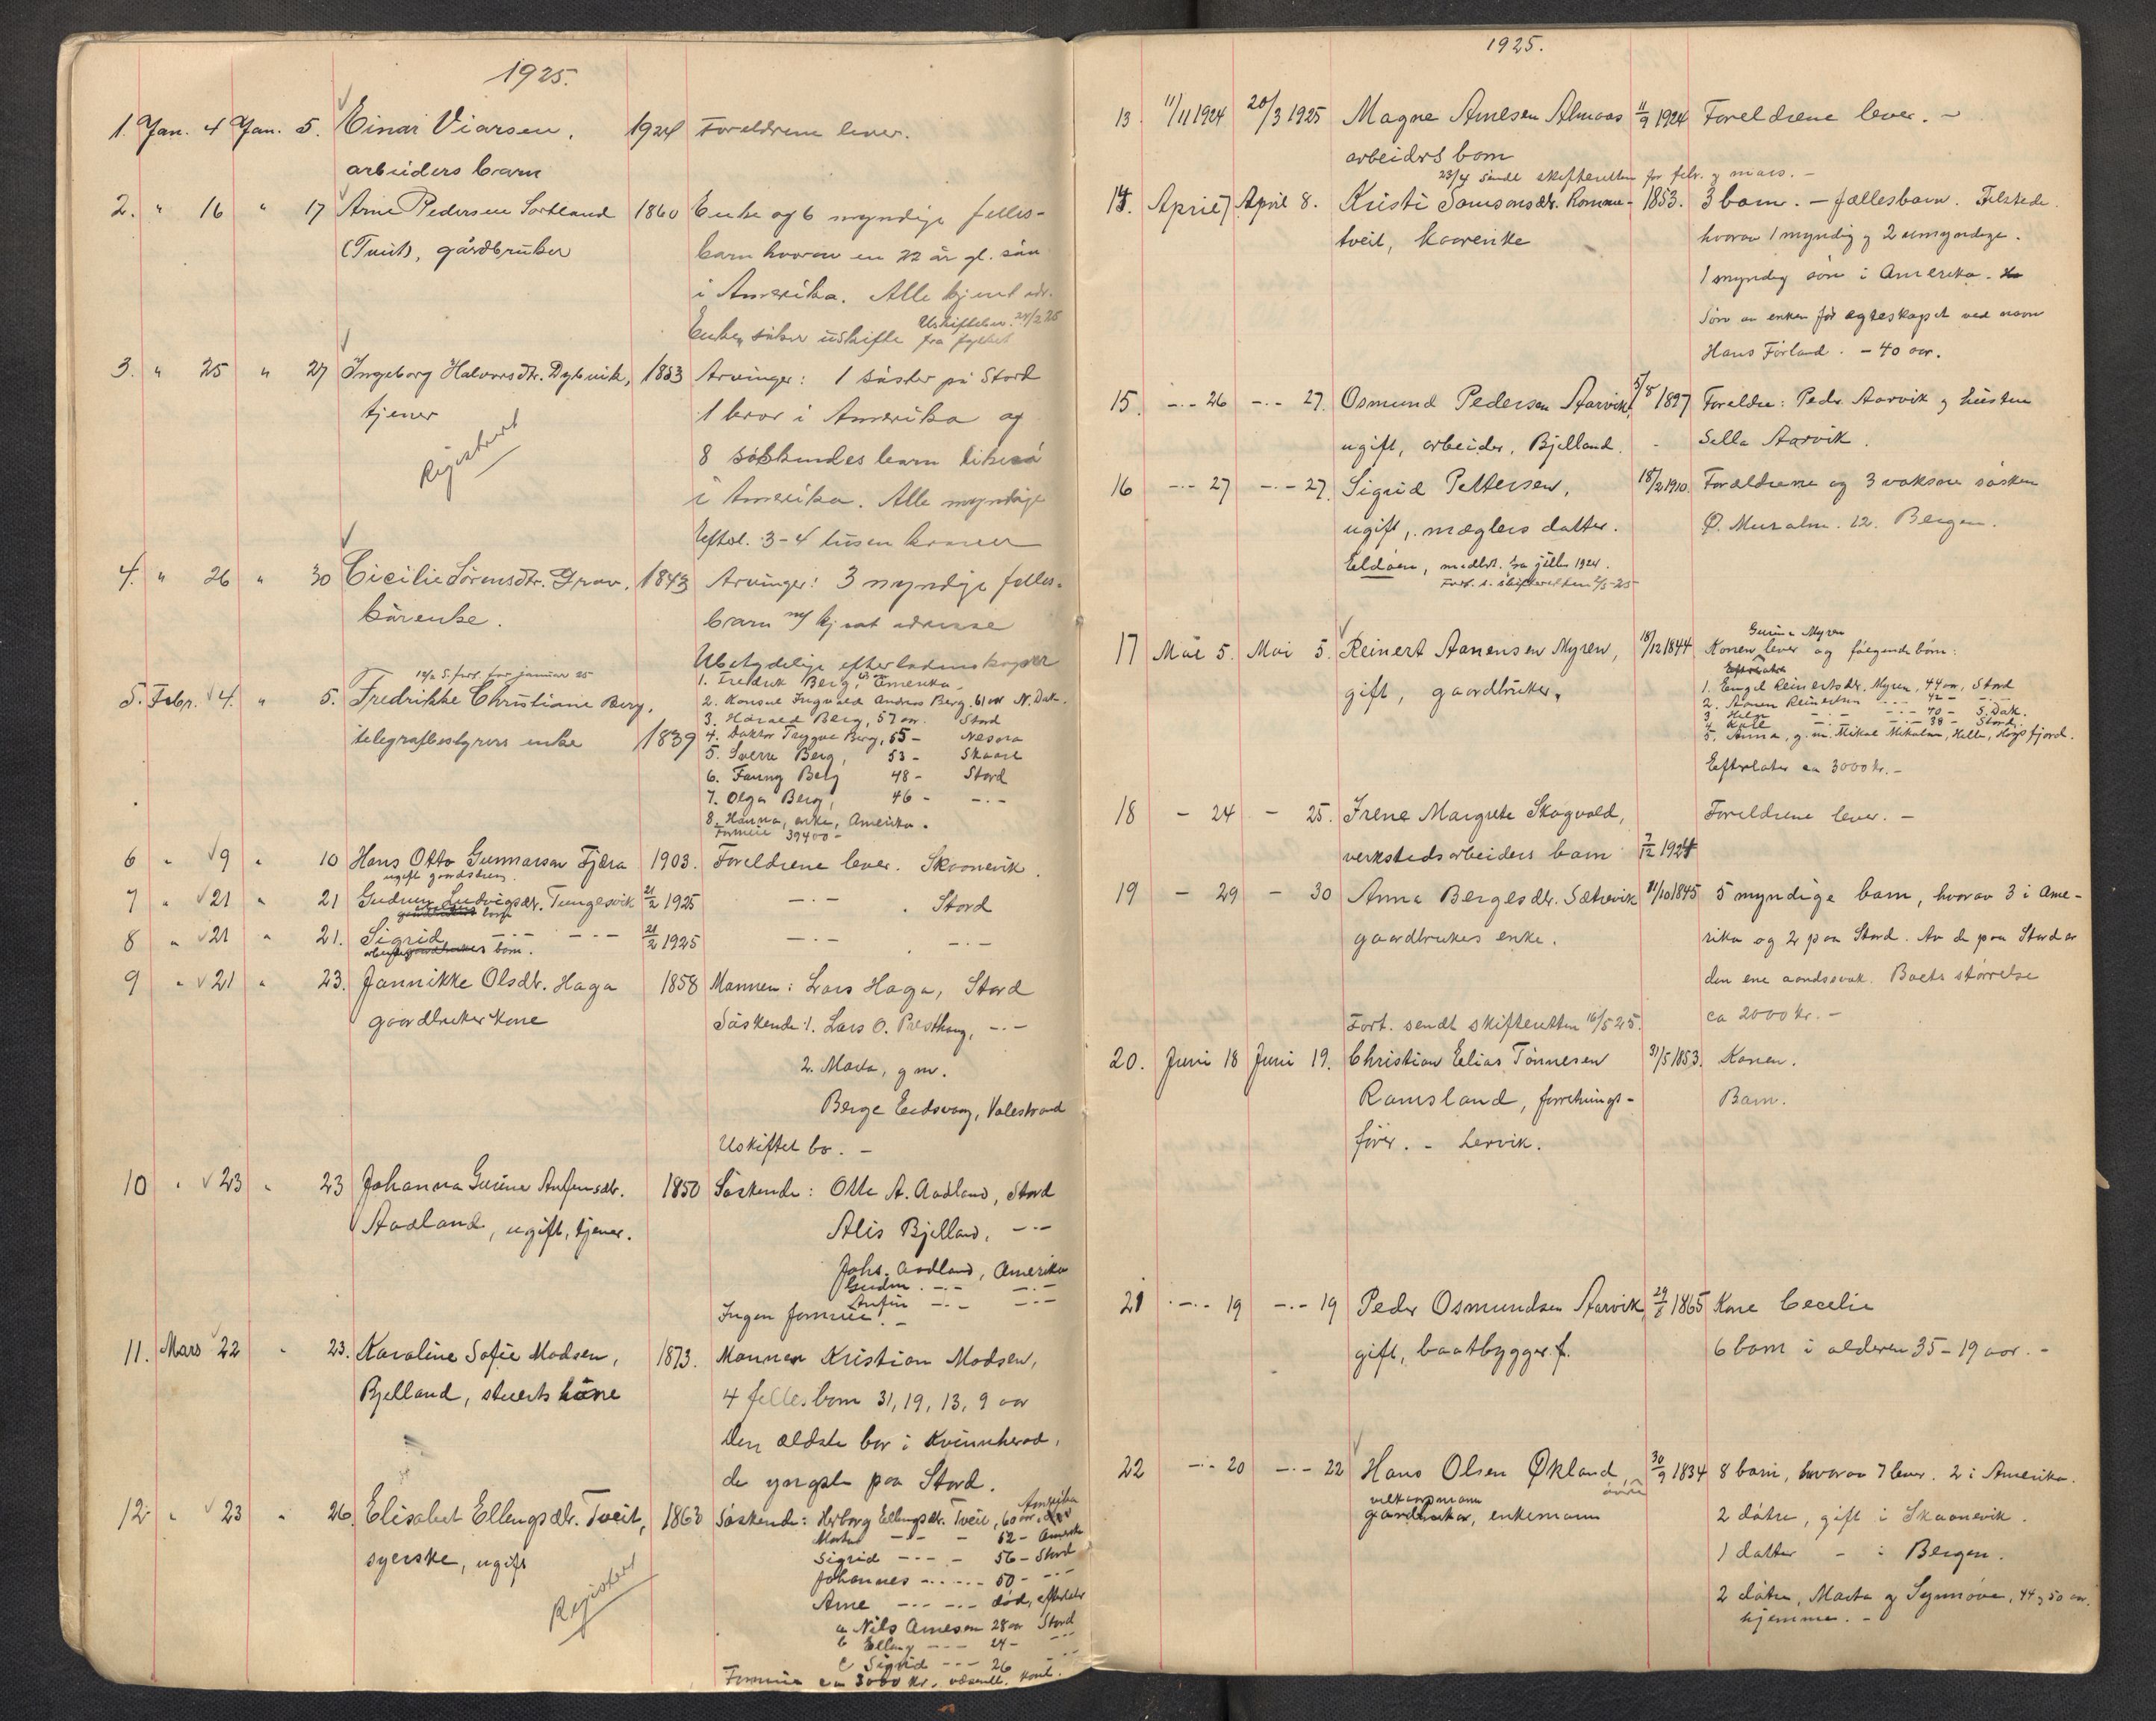 1925.
1. Jan. 4 Jan. 5. Einar Viarsen, 1924 Foreldrene lever.
arbeiders barn
2. " 16 " 17 Arne Pedersen Sortland 1860 Enke og 6 myndige felles-
(Tveit), gårdbruker barn hvorav en 22 år gl. sön
i Amerika. Alle kjent adr.
Uskiftebev. 24/2 25
Enken söker uskifte fra fylket
3. " 25 " 27 Ingeborg Halvorsdtr. Dybvik, 1853 Arvinger: 1 söster på Stord
tjener 1 bror i Amerika og
Registrert 8 söskendes barn likeså
i Amerika. Alle myndige
Eftol. 3-4 tusen kroner
4. " 26 " 30 Cicilie Sörensdtr. Grov, 1843 Arvinger: 3 myndige felles-
kårenke. barn m/ kjent adresse
Ubetydelige efterladenskaper
5. Febr. 4. " 5. Fredrikke Christiane Berg, 1. Fredrik Berg, Amerika.
telegrafbestyrers enke 1839 2. Konsul Ingvald Andreas Berg, 61 aar N. Dak.
3. Harald Berg, 57 aar. Stord
4. Doktor Trygve Berg, 55 - Nesna
5. Sverre Berg, 53 - Skaare
6. Fanny Berg 48 - Stord
7. Olga Berg, 46 - -.-
8. Hanna, enke, Amerika.
Formue 39400 -
6 " 9 " 10 Hans Otto Gunnarson Fjæra 1903. Foreldrene lever. Skaanevik.
ugift gaardsdreng.
7 " 21 " 21 Gudrun Ludvigsdtr. Tungesvik 21/2 1925 -.- . Stord
barn
8 " 21 " 21. Sigrid -.- -.- 21/2 1925 -.- . -.-
barn.
9 " 21 " 23. Jannikke Olsdtr. Haga 1858 Mannen: Lars Haga, Stord
gaardbruker kone Söskende: 1. Lars O. Presthaug, -.-
2. Marta, g m.
Berge Eidsvaag, Valestrand
Uskiftet bo. -
10 " 23 " 23 Johanna Gurine Anfinsdtr. 1850 Söskende: Otto A. Aadland, Stord
Aadland, ugift, tjener. Alis Bjelland, -.-
Johs. Aadland, Amerika
-.- -.-
Anfin -.- -.-
Ingen formue. -
11. Mars 22 " 23. Karoline Sofie Madsen, 1873. Mannen Kristian Madsen,
Bjelland, stuerts kone 4 fellesbarn 31, 19, 13, 9 aar
Den ældste bor i Kvinnherad,
de yngste paa Stord.
12. " 23 " 26. Elisabet Ellengsdtr. Tveit, 1863 Söskende: Herborg Ellingsdtr. Tveit, 60 aar, Amerika
syerske, ugift -.- - 62 - Amerika
Registrert Sigrid -.- - 56 - Stord
Johannes -.-.- 50 - -.-
Arne -.- -.- död, efterlater
a Nils Arnesen 28 aar Stord
b Elling -.- 24 - -.-
c Sigrid -.- 26 -.-
Formue ca 3000 kr.
1925.
13 11/11 1924 20/3 1925 Magne Arnesen Almaas 11/9 1924 Foreldrene lever. -
arbeiders barn
23/4 sendt skifteretten for febr. og mars. -
14. April 7 April 8. Kristi Samsonsdtr. Romme- 1853. 3 barn. - fællesbarn. Tilstede
tveit, kaarenke hvorav 1 myndig og 2 umyndige.
1 myndig sön i Amerika.
Sön av enken för egteskapet ved navn
Hans Förland. - 40 aar.
15. -.- 26 -.- 27. Osmund Pedersen Aarvik, 5/8 1897 Foreldre: Peder Aarvik og hustru
ugift, arbeider, Bjelland. Sella Aarvik.
16 -.- 27 -.- 27. Sigrid Pettersen, 18/2 1910. Forældrene og 3 voksne søsken
ugift, mæglers datter. Ö. Muralm. 12. Bergen.
Eldöen, midlert. fra juli 1924.
Fort. t. skifteretten 2/5-25
17 Mai 5. Mai 5. Reinert Aanensen Myren, 18/12 1844 Konen Gurine Myren lever og fölgende börn:
gift, gaardbruker, 1. Engel Reinertsdtr. Myren, 44 aar, Stord
2. Aanen Reinertsen 42 -
3 -.- -.- 40 - S. Dak.
4 Karl -.- -.- 38 - Stord.
5. Anna, g. m. Mikal Mikalsen, Helle, Högsfjord.
Efterlater ca 3000 kr. -
18 - 24 - 25. Irene Margrete Skogvold, Foreldrene lever. -
verkstedsarbeiders barn 7/12 1924
19 - 29 - 30 Anna Bergesdtr. Sætrevik 11/10 1845 5 myndige barn, hvorav 3 i Ame-
gaardbrukers enke. rika og 2 paa Stord. Av de paa Stord er
den ene aandssvak. Boets störrelse
Fort. sendt skifteretten 16/5 25. ca 2000 kr. -
20. Juni 18 Juni 19. Christian Elias Tönnesen 31/5 1853. Konen.
Ramsland, forretnings- Barn.
förer. - Lervik.
21 -.- 19 -.- 19 Peder Osmundsen Aarvik, 29/8 1865 Kone Cecelie
gift, baatbygger f. 6 barn i alderen 35 - 19 aar. -
22 -.- 20 -.- 22 Hans Olsen Økland, 30/9 1834 8 barn, hvorav 7 lever. 2 i Amerika.
gardbruker, enkemann 2 dötre, gift i Skaanevik.
1 datter - i Bergen.
2 dötre, Marta og Synnöve, 44 og 50 aar.
hjemme. -